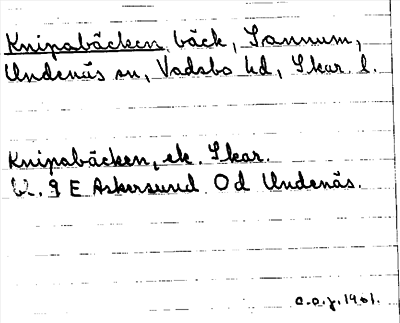 Knipabäcken, bäck, Sannum,
Undenäs sn, Vadsbo hd, Skar. l.
Knipabäcken, ek. Skar.
Bl. 9 E Askersund Od Undenäs.
C.O.J. 1961.